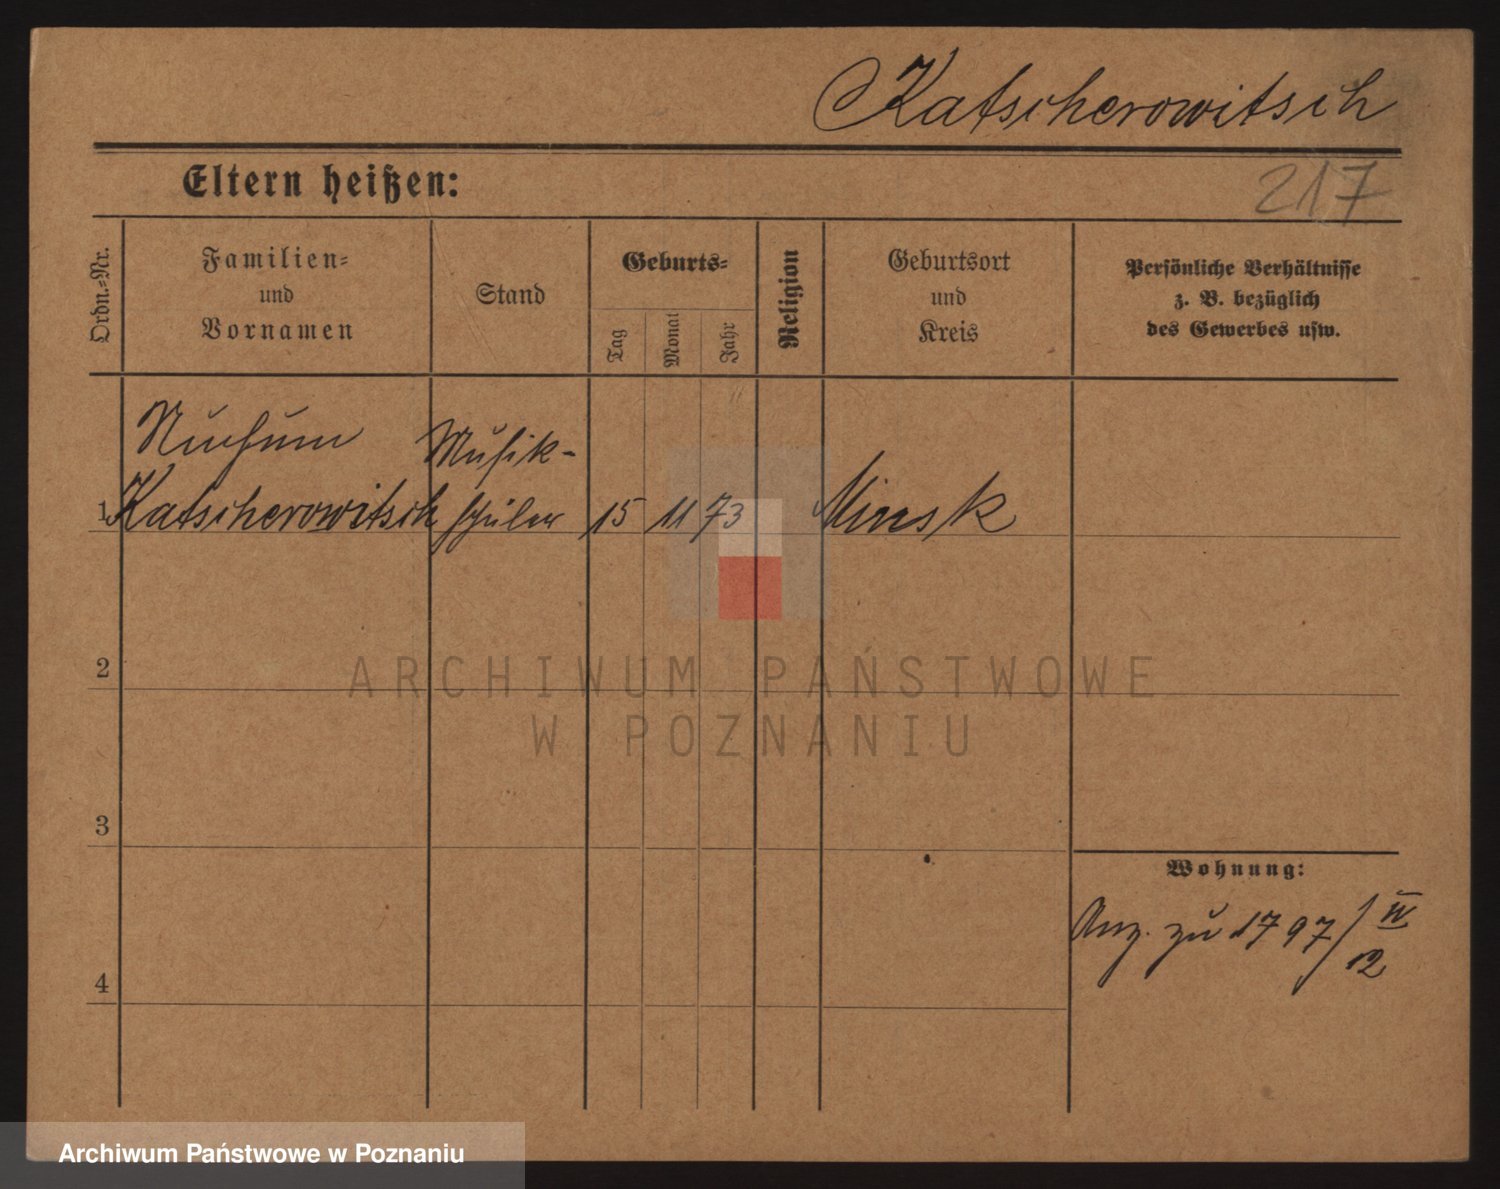 Katscherowitsch
Eltern heißen:
217
Ordn.-Nr.
Familien-
und
Vornamen
Stand
Geburts-
Tag
Monat
Jahr
Religion
Geburtsort
und
Kreis
Persönliche Verhältnisse
z. B. bezüglich
des Gewerbes usw.
Nuchum
Musik-
1 Katscherowitsch schüler 15 11 73 Minsk
2
ARCHIWUM PAŃSTWOWE
W POZNANIU
3
Wohnung:
zu 1797/IV
12
4
Archiwum Państwowe w Poznaniu